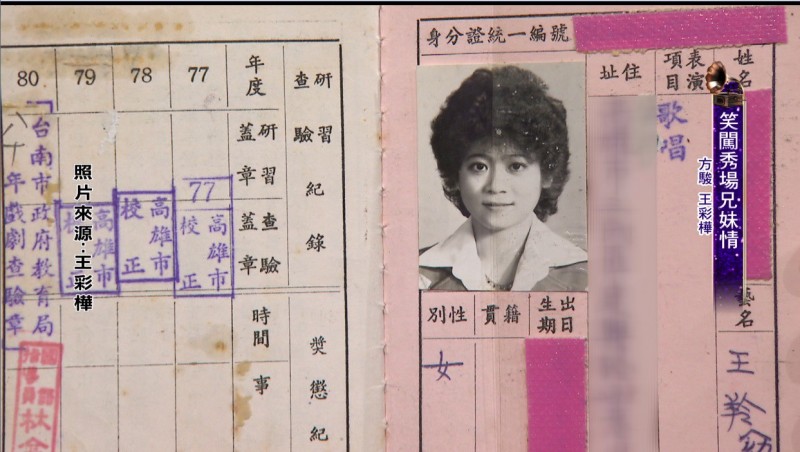 身分證統一編號
姓名
表演項目
歌唱
住址
性別
籍貫
出生日期
女
藝名
王羚
笑闖秀場兄妹情
方駿 王彩樺
研習查驗紀錄
年度
77
78
79
80
研習蓋章
查驗蓋章
77
高雄市
校正
高雄市
校正
高雄市
校正
台南市政府教育局
八十年戲劇查驗章
照片來源:王彩樺
獎懲紀
時間
事